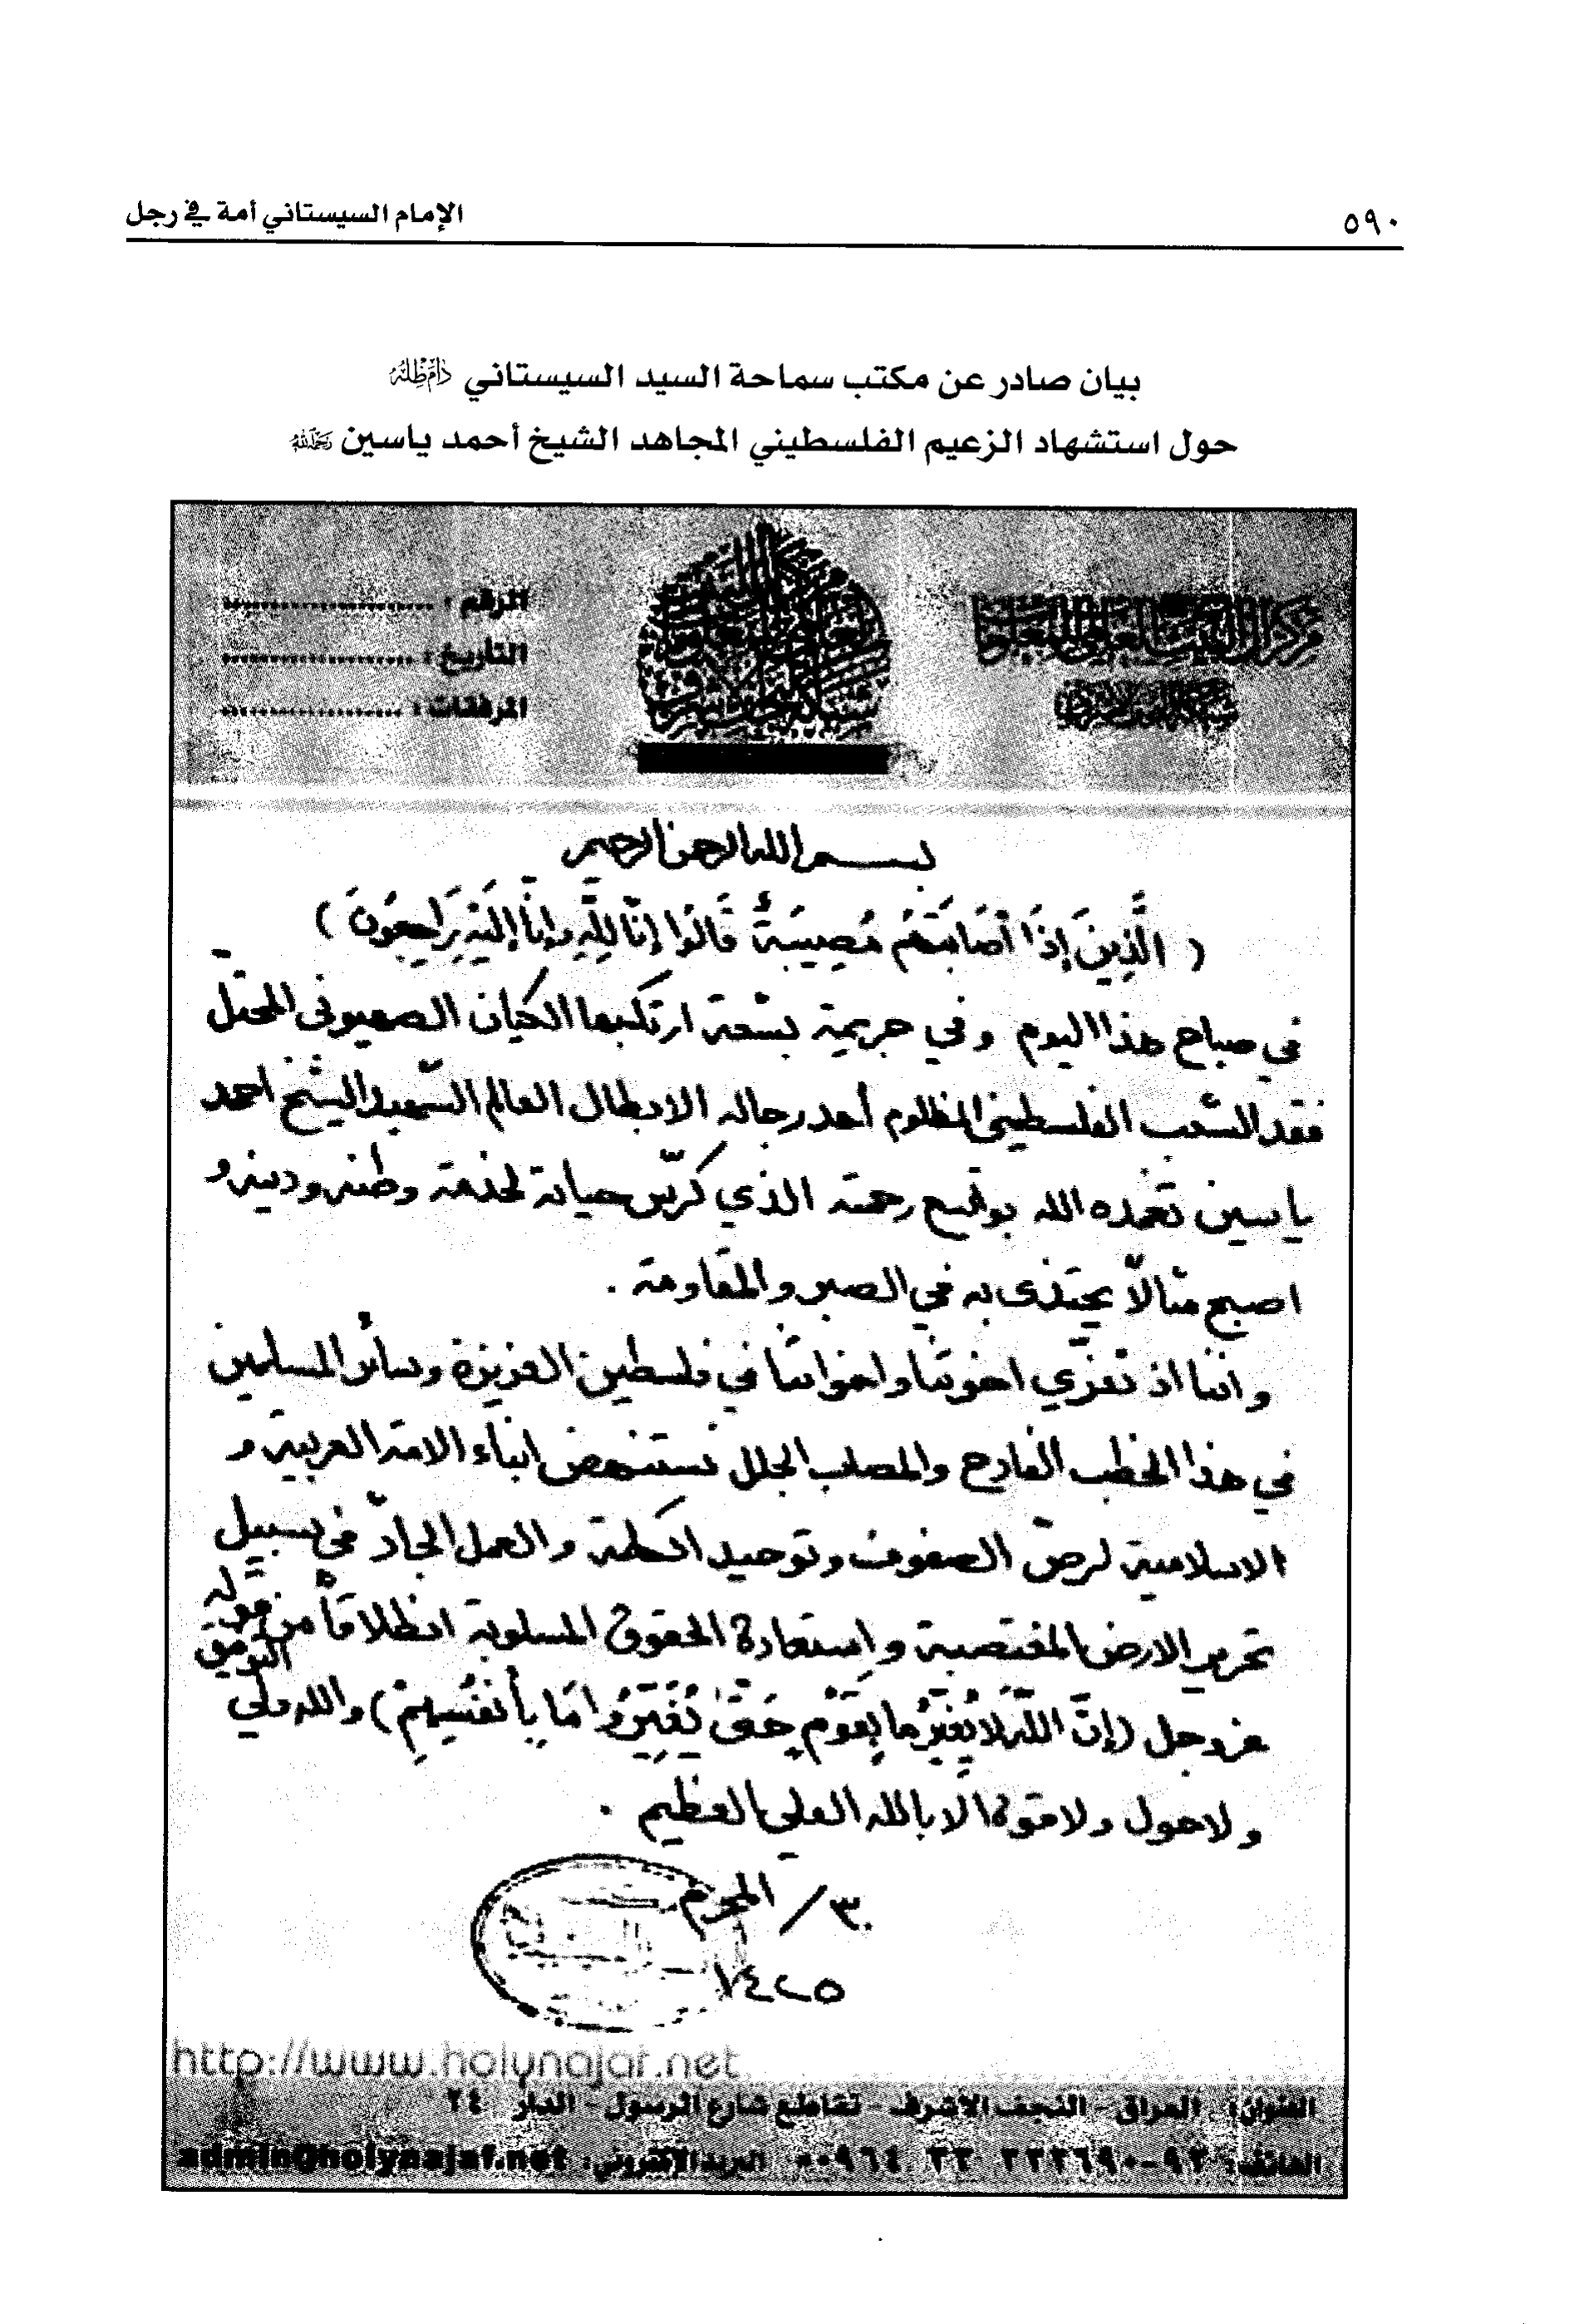 ٥٩٠
الإمام السيستاني أمة في رجل
بيان صادر عن مكتب سماحة السيد السيستاني دام ظله
حول استشهاد الزعيم الفلسطيني المجاهد الشيخ أحمد ياسين
الرقم : ......................
التاريخ : ......................
المرفقات : ......................
بسم الله الرحمن الرحيم
( الَّذِينَ إِذَا أَصَابَتْهُم مُصِيبَةٌ قَالُوا إِنَّا لِلَّهِ وَإِنَّا إِلَيْهِ رَاجِعُونَ )
في صباح هذا اليوم وفي جريمة بشعة ارتكبها الكيان الصهيوني المحتل
فقد الشعب الفلسطيني المظلوم أحد رجاله الابطال العالم الشهيد الشيخ احمد
ياسين تغمده الله بوقيع رحمته الذي كرّس حياته لخدمة وطنه ودينه و
اصبح مثالاً يحتذى به في الصبر والمقاومة .
و اننا اذ نعزّي اخوتنا واخواتنا في فلسطين العزيزة وسائر المسلمين
في هذا الخطب الفادح والمصاب الجلل نستنهض ابناء الامة العربية و
الاسلامية لرصّ الصفوف وتوحيد الكلمة والعمل الجادّ في سبيل
تحرير الارض المغتصبة وإستعادة الحقوق المسلوبة انطلاقاً من قوله
عز وجل (إنّ اللَّهَ لا يُغَيِّرُ ما بِقَوْمٍ حَتَّىٰ يُغَيِّرُوا مَا بِأَنفُسِهِمْ) والله ولي التوفيق
ولا حول ولا قوة الا بالله العلي العظيم .
٣٠ / المحرم
١٤٢٥
http://www.holynajaf.net
العنوان: العراق - النجف الاشرف - تقاطع شارع الرسول - الدار ٢٤
الهاتف: البريد الالكتروني: admin@holynajaf.net